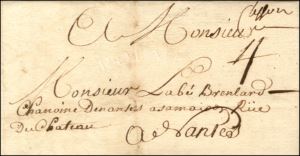 A Monsieur
4
Monsieur Labé Brenlard
Chanoine Denantes asamaison Rüe
Du Chateau
a Nantes